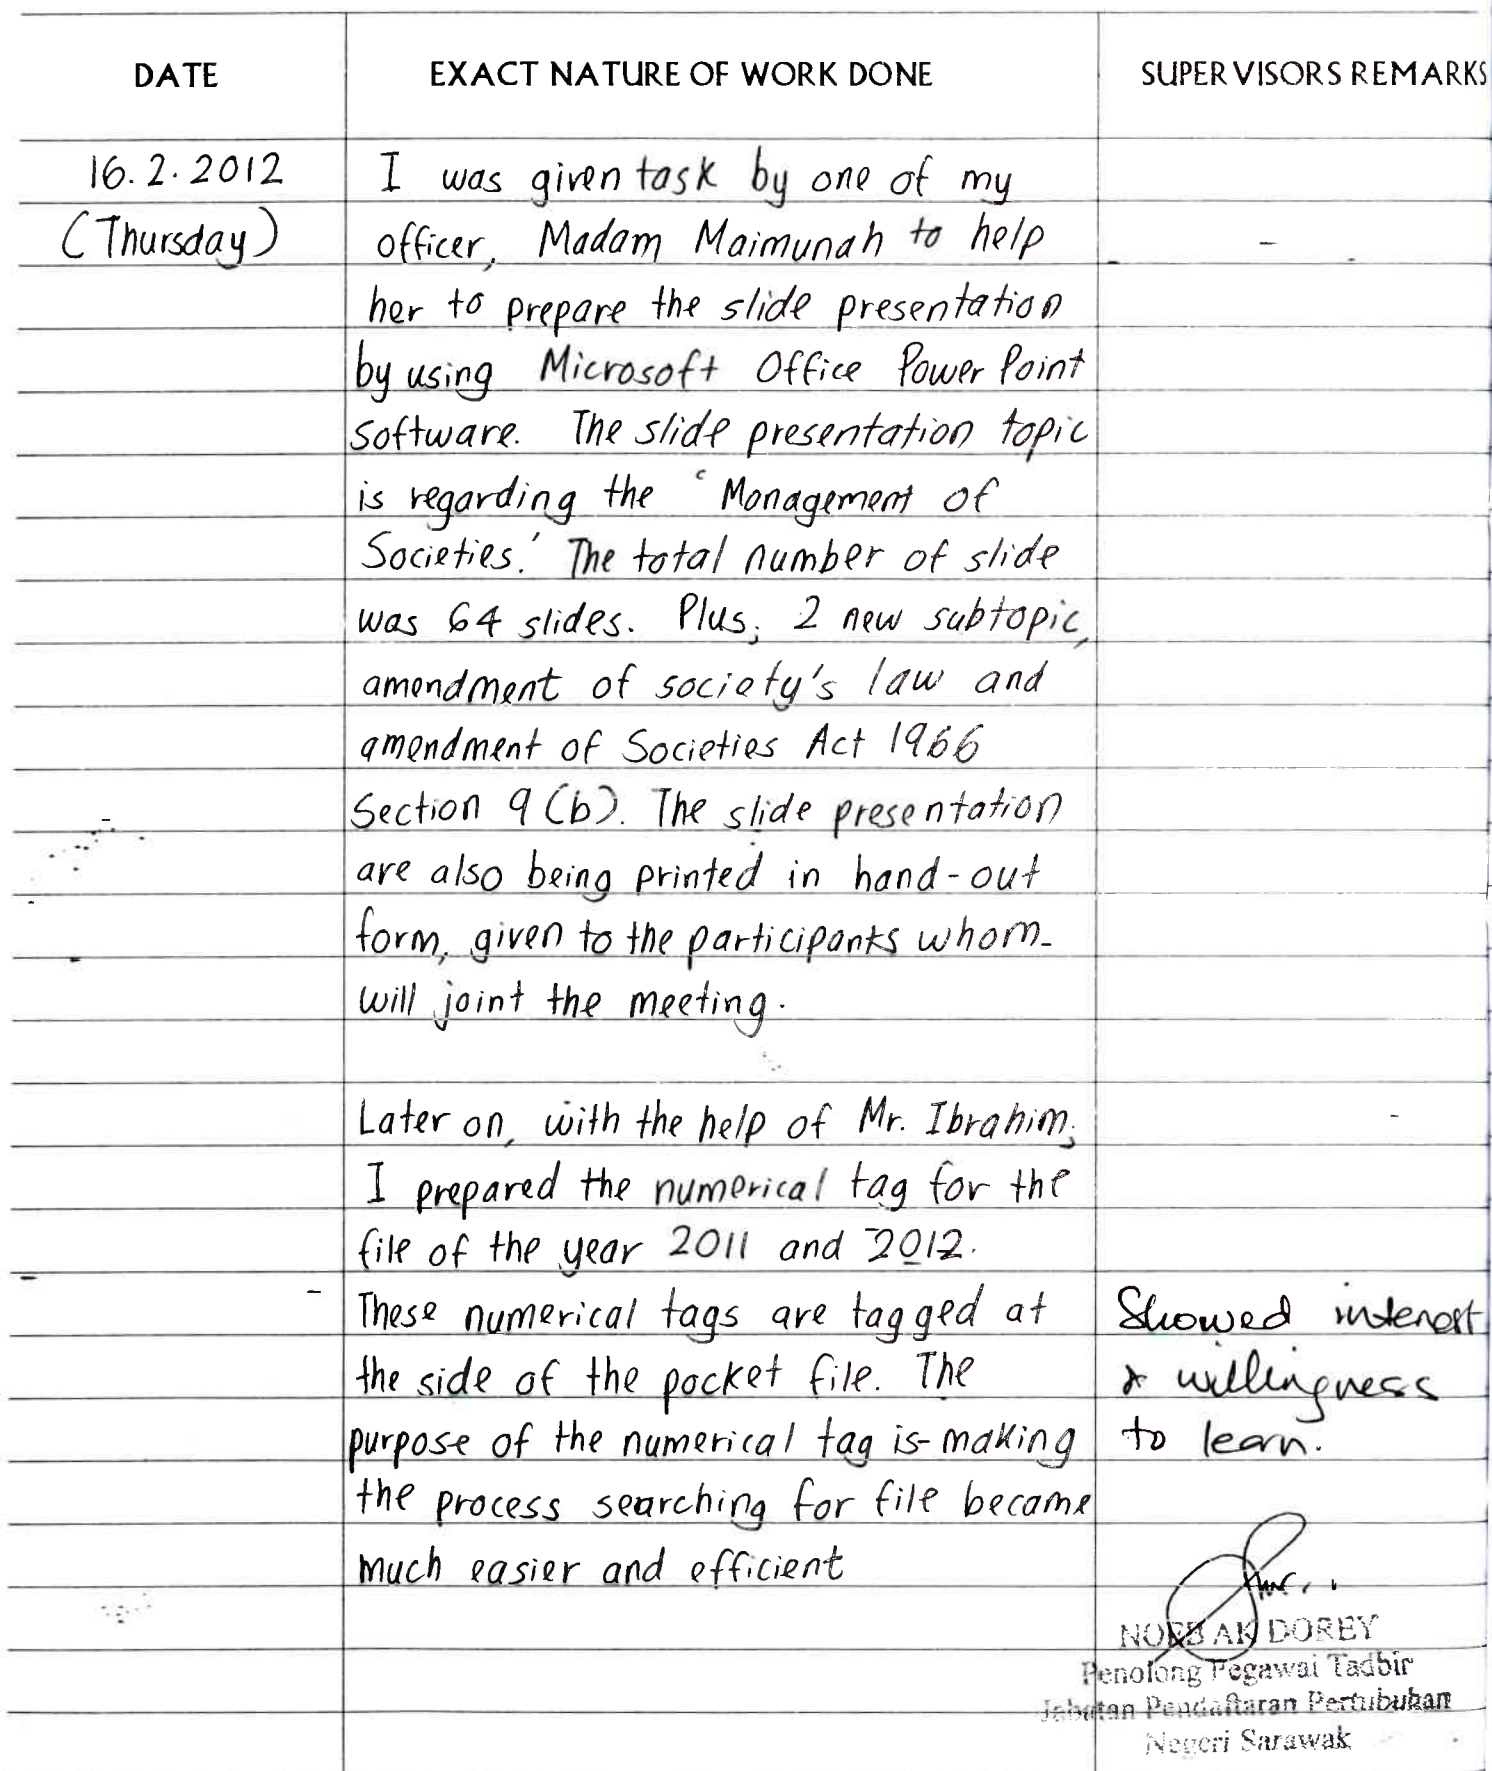 DATE
EXACT NATURE OF WORK DONE
SUPERVISORS REMARKS
16.2.2012
(Thursday)
I was given task by one of my
officer, Madam Maimunah to help
her to prepare the slide presentation
by using Microsoft Office Power Point
software. The slide presentation topic
is regarding the 'Management of
Societies.' The total number of slide
was 64 slides. Plus, 2 new subtopic,
amendment of society's law and
amendment of Societies Act 1966
Section 9 (b). The slide presentation
are also being printed in hand-out
form, given to the participants whom
will joint the meeting.
Later on, with the help of Mr. Ibrahim,
I prepared the numerical tag for the
file of the year 2011 and 2012.
These numerical tags are tagged at
the side of the pocket file. The
purpose of the numerical tag is making
the process searching for file became
much easier and efficient
Showed interest
& willingness
to learn.
NOEB AK DOREY
Penolong Pegawai Tadbir
Jabatan Pendaftaran Pertubuhan
Negeri Sarawak